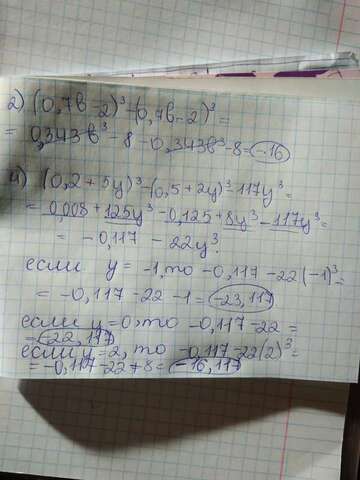 2) (0,7b-2)³-(0,7b-2)³=
= 0,343b³-8-0,343b³-8=-16
4) (0,2+5y)³-(0,5+2y)³-117y³=
= 0,008+125y³-0,125+8y³-117y³=
= -0,117-22y³.
если y=-1, то -0,117-22(-1)³=
= -0,117-22-1=-23,117
если y=0, то -0,117-22=
=-22,117
если y=2, то -0,117-22(2)³=
= -0,117-22+8=-16,117